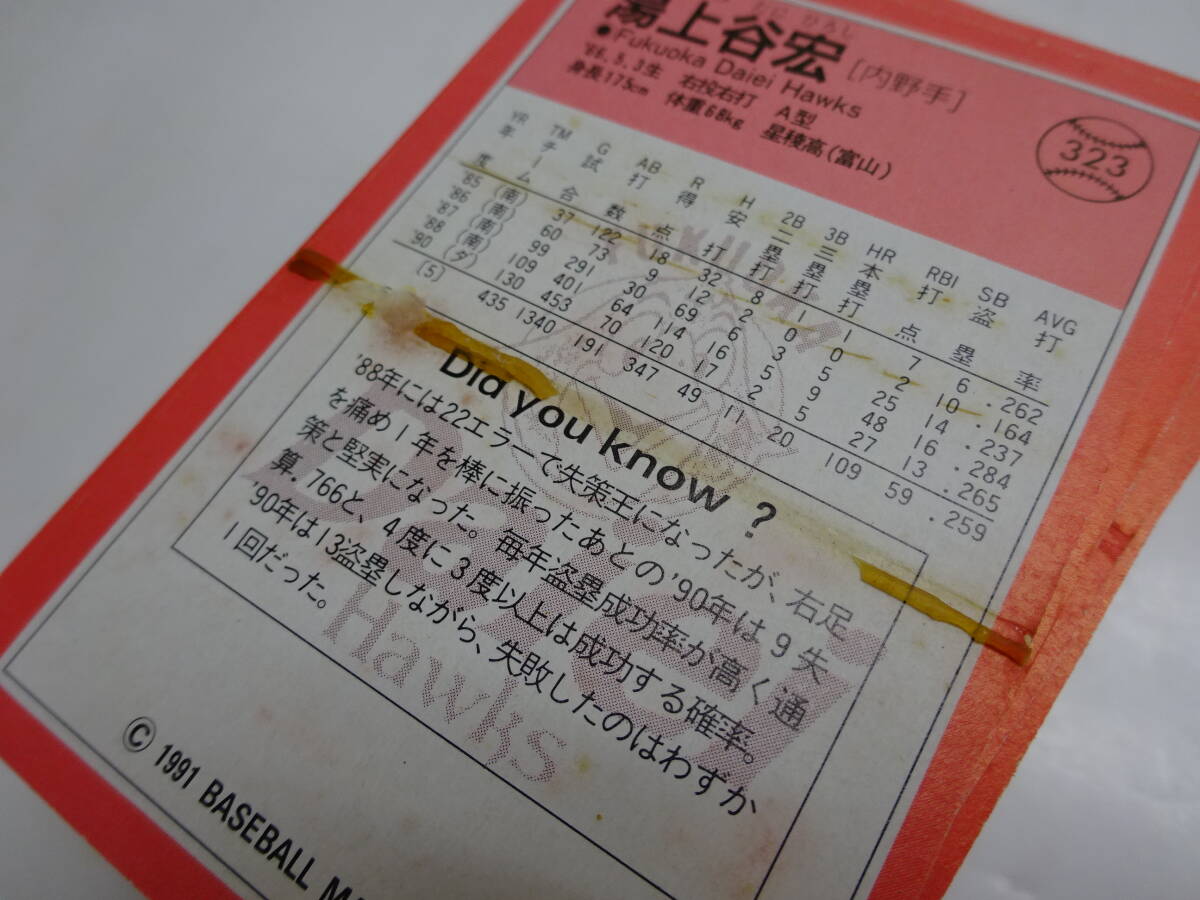 湯上谷宏 [内野手]
●Fukuoka Daiei Hawks
'66.5.3生 右投右打 A型
身長175cm 体重68kg 星稜高(富山)
323
YR TM G AB R H 2B 3B HR RBI SB AVG
年度 チーム 試合 打数 得点 安打 二塁打 三塁打 本塁打 打点 盗塁 打率
'85 (南) 37 122 18 32 8 1 1 7 6 .262
'86 (南) 60 73 9 12 2 0 0 2 10 .164
'87 (南) 99 291 30 69 6 3 5 25 14 .237
'88 (南) 109 401 64 114 16 5 9 48 16 .284
'90 (ダ) 130 453 70 120 17 2 5 27 13 .265
(5) 435 1340 191 347 49 11 20 109 59 .259
Did you know ?
'88年には22エラーで失策王になったが、右足
を痛め1年を棒に振ったあとの'90年は9失
策と堅実になった。毎年盗塁成功率が高く通
算.766と、4度に3度以上は成功する確率。
'90年は13盗塁しながら、失敗したのはわずか
1回だった。
Daiei
Hawks
© 1991 BASEBALL